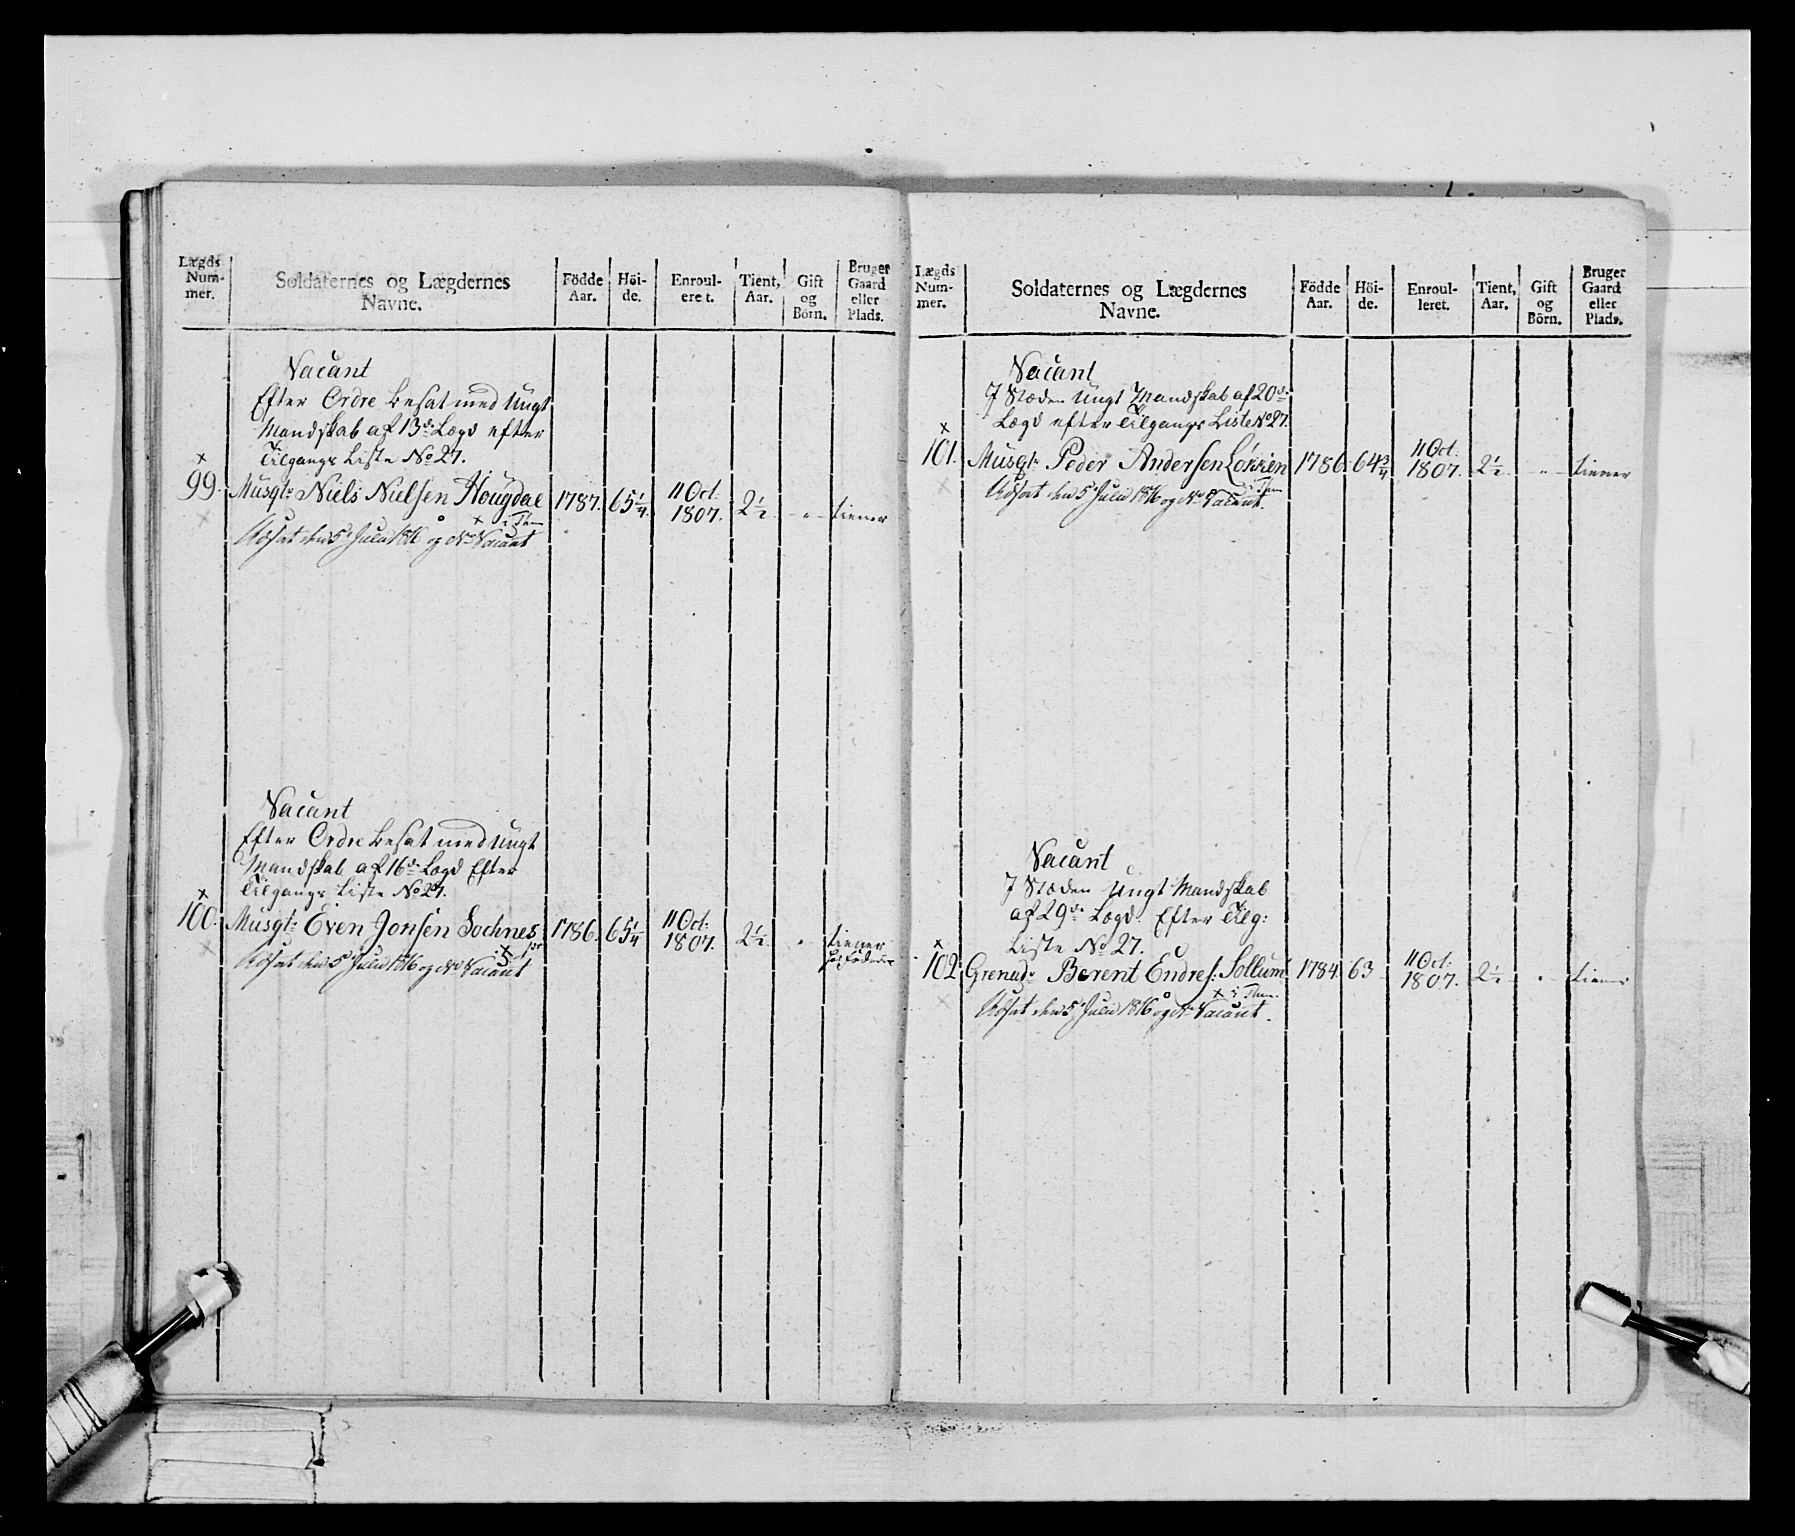 Lægds Num- mer.
Soldaternes og Lægdernes Navne.
Födde Aar.
Höi- de.
Enroul- eret.
Tient, Aar.
Gift og Börn.
Bruger Gaard eller Plads.
Vacant
Efter Ordre besat med Ungt
Mandskab af 13de Lægd efter
Tilgangs Liste No 27.
×
99. Musqt: Niels Nielsen Hougdal 1787. 65 1/4. 11 Oct: 1807. 2 1/2. - " - tiener
× i Thm
Afsat den 5 Julii 1816 og No Vacant
Vacant
Efter Ordre besat med Ungt
Mandskab af 16de Lægd Efter
Tilgangs Liste No 27.
×
100. Musqt: Even Jonsen Sochnes 1786. 65 1/4 11 Oct: 1807. 2 1/2. " tiener
Afsat den 5 Julii 1816 og No Vacant
Lægds Num- mer.
Soldaternes og Lægdernes Navne.
Födde Aar.
Höi- de.
Enroul- leret.
Tient, Aar.
Gift og Börn.
Bruger Gaard eller Plads.
Vacant
I Stæden Ungt Mandskab af 20de
Lægd efter Tilgangs Liste No 27.
×
101. Musqt: Peder Andersen Løkken 1786. 64 3/4 11 Oct: 1807. 2 1/2. - " - tiener
i Thm
Afsat den 5 Julii 1816 og No Vacant.
Vacant
I Stæden Ungt Mandskab
af 29de Lægd. Efter Tilg:
Liste No 27.
×
102. Grenad: Berent Endres: Sollum 1784. 63 - 11 Oct: 1807. 2 1/2 - " - tiener
× i Thm.
Afsat den 5 Julii 1816 og No Vacant.